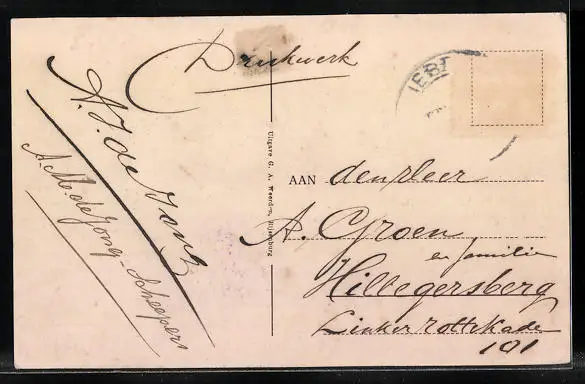 Drukwerk
A. J. de Jong
A. M. de Jong - Scheepers
Uitgave G. A. Weerden, Rijsenburg
AAN den Heer
A. Groen
en familie
Hillegersberg
Linker rottekade
101